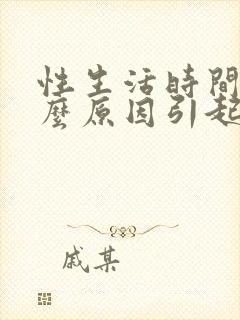 性生活時間
麼原因引起
戚某